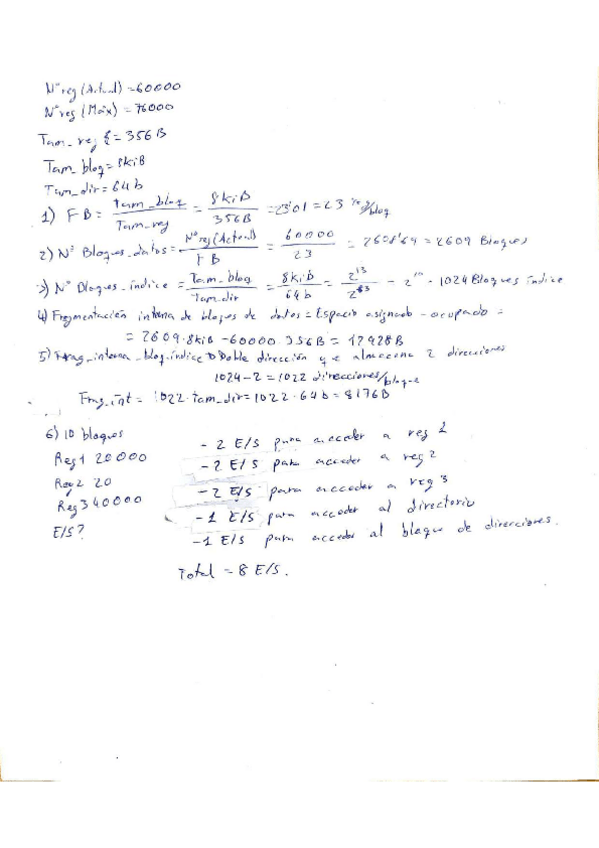 Nº reg (Actual) = 60000
Nº reg (Máx) = 76000
Tam_reg = 356B
Tam_bloq = 8kiB
Tam_dir = 64b
1) FB = Tam_bloq / Tam_reg = 8kiB / 356B = 23'01 = 23 reg/bloq
2) Nº Bloques_datos = Nº reg (Actual) / FB = 60000 / 23 = 2608'69 = 2609 Bloques
3) Nº Bloques_índice = Tam_bloq / Tam_dir = 8kiB / 64b = 2^13 / 2^3 = 2^10 = 1024 Bloques índice
4) Fragmentación interna de bloques de datos = Espacio asignado - ocupado =
= 2609·8kiB - 60000·356B = 12928B
5) Frag_interna_bloq.índice Doble dirección que almacena 2 direcciones
1024-2 = 1022 direcciones/bloque
Frag_int = 1022·tam_dir = 1022·64b = 8176B
6) 10 bloques
- 2 E/S para acceder a reg 1
Reg1 20000
- 2 E/S para acceder a reg 2
Reg2 20
- 2 E/S para acceder a reg 3
Reg3 40000
- 1 E/S para acceder al directorio
E/S?
- 1 E/S para acceder al bloque de direcciones.
Total = 8 E/S.